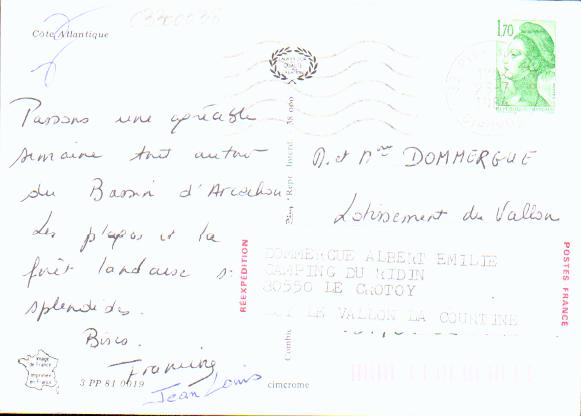 Côte Atlantique
Passons une agréable
semaine tout autour
du Bassin d'Arcachon
Les plages et la
forêt landaise st
splendides.
Bises.
Francine
Jean Louis
image
de France
Imprimé
en France
3 PP 81 0019
cimcrome
Combier
RÉEXPÉDITION
1,70
M. et Mme DOMMERGUE
Lotissement du Vallon
DOMMERGUE ALBERT EMILIE
CAMPING DU RIDIN
80550 LE CROTOY
LOT LE VALLON LA COURTINE
POSTES FRANCE